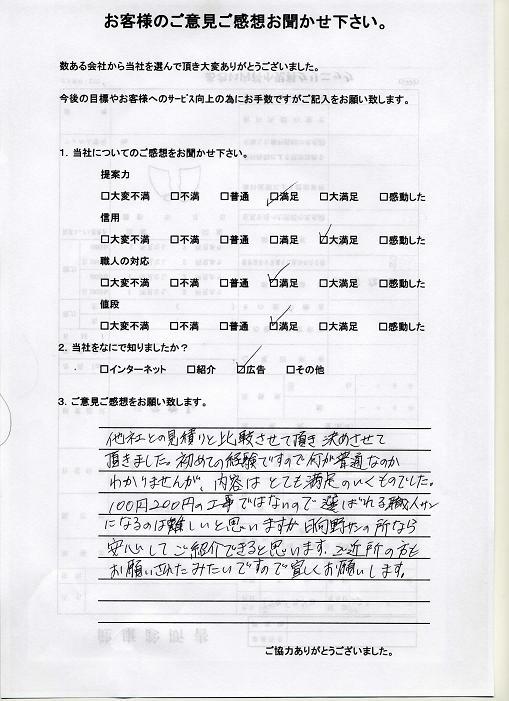 お客様のご意見ご感想お聞かせ下さい。
数ある会社から当社を選んで頂き大変ありがとうございました。
今後の目標やお客様へのサービス向上の為にお手数ですがご記入をお願い致します。
1．当社についてのご感想をお聞かせ下さい。
提案力
□大変不満 □不満 □普通 ☑満足 □大満足 □感動した
信用
□大変不満 □不満 □普通 □満足 ☑大満足 □感動した
職人の対応
□大変不満 □不満 □普通 ☑満足 □大満足 □感動した
値段
□大変不満 □不満 □普通 ☑満足 □大満足 □感動した
2．当社をなにで知りましたか？
□インターネット □紹介 ☑広告 □その他
3．ご意見ご感想をお願い致します。
他社との見積りと比較させて頂き決めさせて
頂きました。初めての経験ですので何が普通なのか
わかりませんが、内容はとても満足のいくものでした。
100円200円の工事ではないので選ばれる職人サン
になるのは難しいと思いますが日向野サンの所なら
安心してご紹介できると思います。ご近所の方も
お願いされたみたいですので宜しくお願いします。
ご協力ありがとうございました。